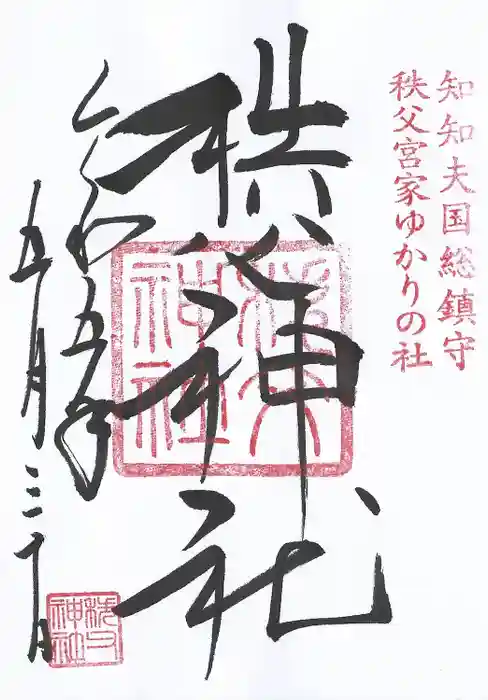 知知夫国総鎮守
秩父宮家ゆかりの社
秩父神社
秩父
神社
令和五年
五月三十日
秩父
神社